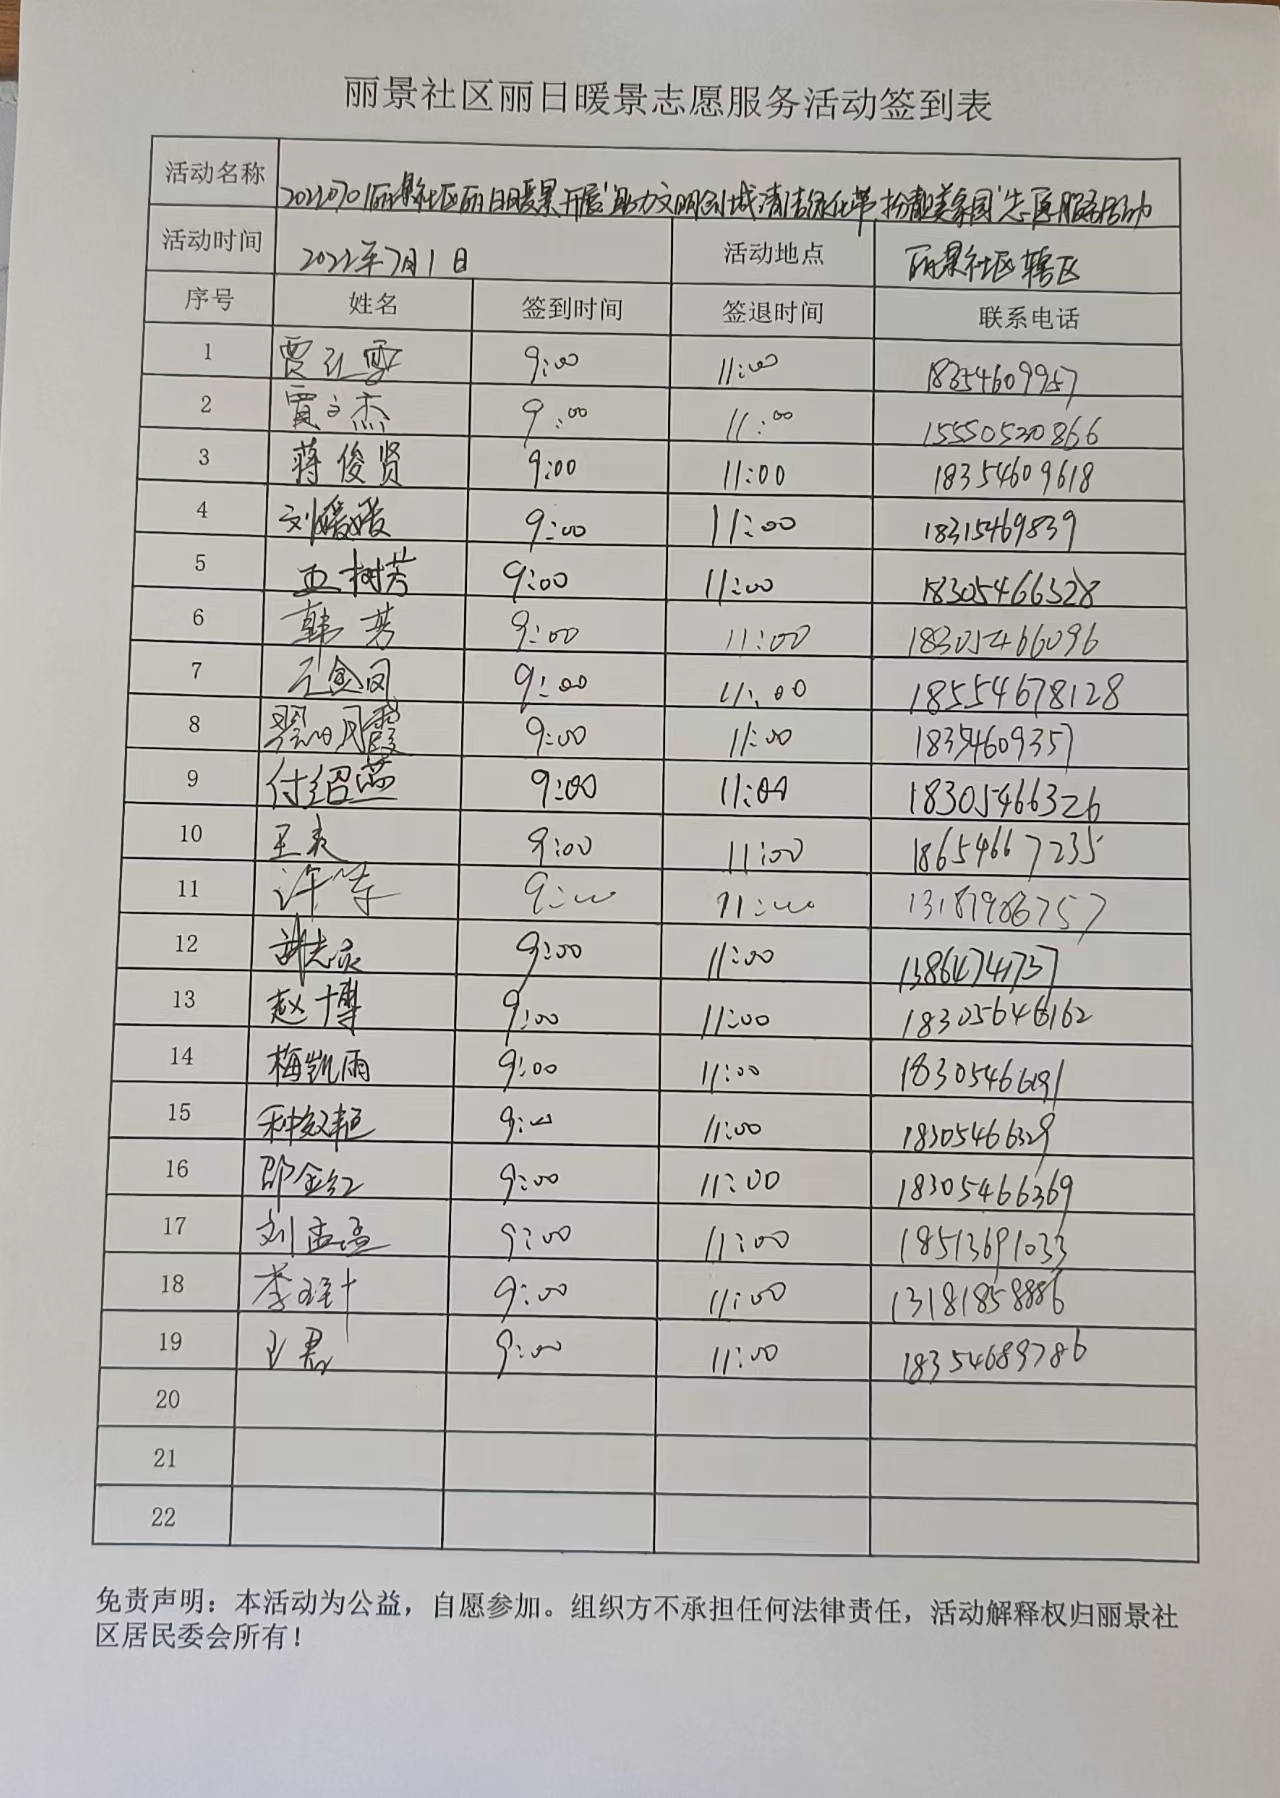 丽景社区丽日暖景志愿服务活动签到表
活动名称 20220701丽景社区丽日暖景开展"助力文明创城清洁绿化带扮靓美家园"志愿服务活动
活动时间 2022年7月1日 活动地点 丽景社区辖区
序号 姓名 签到时间 签退时间 联系电话
1 贾红雪 9:00 11:00 18354609957
2 贾文杰 9:00 11:00 15550520866
3 蒋俊贤 9:00 11:00 18354609618
4 刘媛媛 9:00 11:00 18315469839
5 王树芳 9:00 11:00 18305466328
6 韩芳 9:00 11:00 18305466096
7 王金凤 9:00 11:00 18554678128
8 翟凤霞 9:00 11:00 18354609357
9 付绍燕 9:00 11:00 18305466326
10 王 9:00 11:00 18654667235
11 许 9:00 11:00 13181986757
12 9:00 11:00 13864741737
13 赵博 9:00 11:00 18305646162
14 梅凯雨 9:00 11:00 18305466191
15 9:00 11:00 18305466329
16 邵金红 9:00 11:00 18305466369
17 刘孟孟 9:00 11:00 18513691033
18 李 9:00 11:00 13181858886
19 王君 9:00 11:00 18354689786
20
21
22
免责声明：本活动为公益，自愿参加。组织方不承担任何法律责任，活动解释权归丽景社
区居民委会所有！